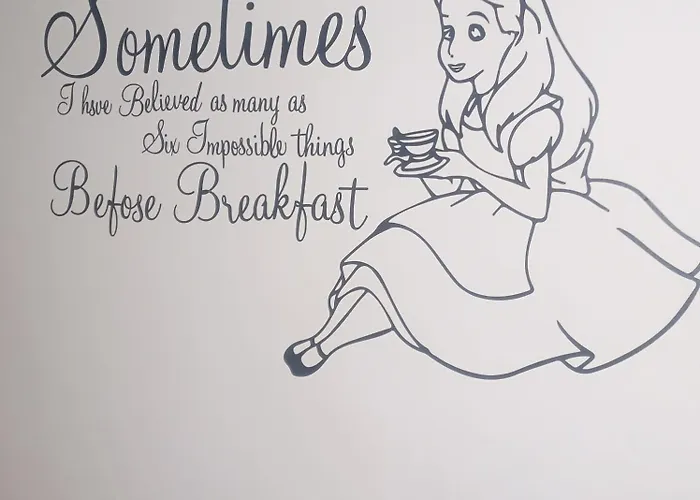 Sometimes
I hsve Believed as many as
Six Impossible things
Befose Breakfast